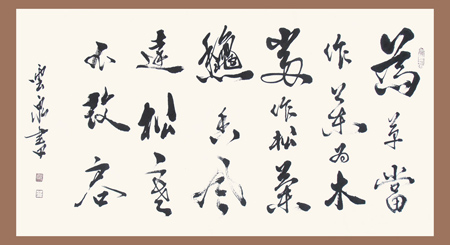 為草當
作蘭为木
當作松蘭
龝香風
遠松寒
不改容
雲 書